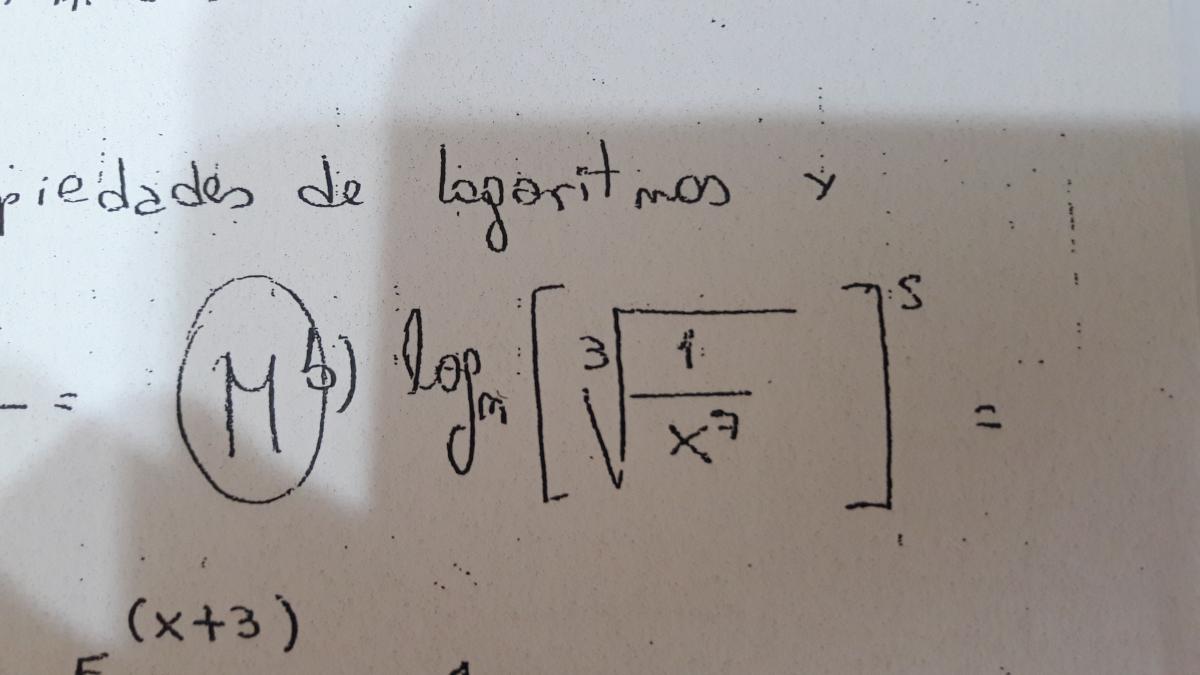 piedades de logaritmos y
= M b) logₘ [ ∛(1/x⁷) ]⁵ =
(x+3)
5 1